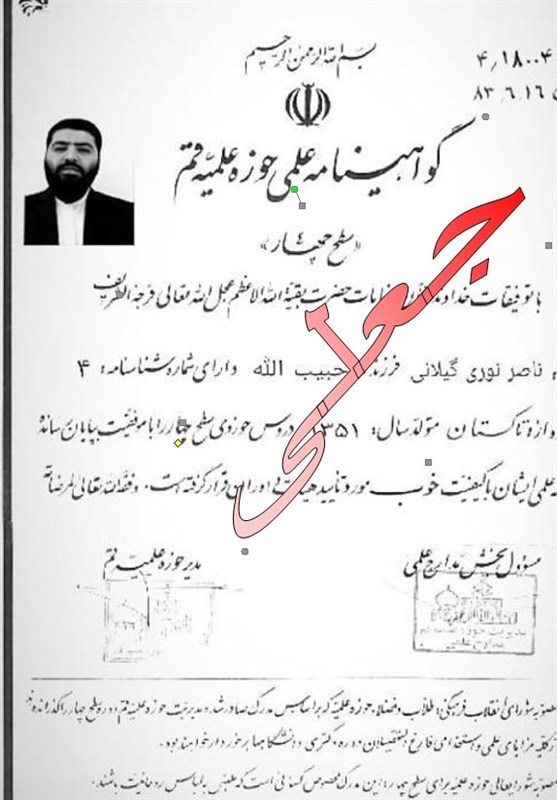 بسم الله الرحمن الرحیم
۴٫۱۸۰۰۴
۸۳٫۶٫۱۶
گواهینامه علمی حوزه علمیه قم
«سطح چهار»
با توفیقات خداوند و عنایات حضرت بقیة الله الاعظم عجل الله تعالی فرجه الشریف
ناصر نوری گیلانی فرزند حبیب الله دارای شماره شناسنامه: ۴
تاکستان متولد سال: ۱۳۵۱ دروس حوزوی سطح چهار را با موفقیت بپایان رسانده
علمی ایشان با کیفیت خوب مورد تایید هیئت داوران قرار گرفته است. وفقه الله تعالی لمرضاته
جعلی
مسؤول بخش مدارج علمی
مدیر حوزه علمیه قم
شورای انقلاب فرهنگی: طلاب و فضلا حوزه علمیه که بر اساس مدرک صادر شده مدیریت حوزه علمیه قم دوره سطح چهار را گذرانده
از کلیه مزایای علمی و استخدامی فارغ التحصیلان دوره دکتری دانشگاهها برخوردار خواهند بود.
شورای عالی حوزه علمیه برای سطح چهار: این مدرک مخصوص کسانی است که ملبس به لباس روحانیت باشند.